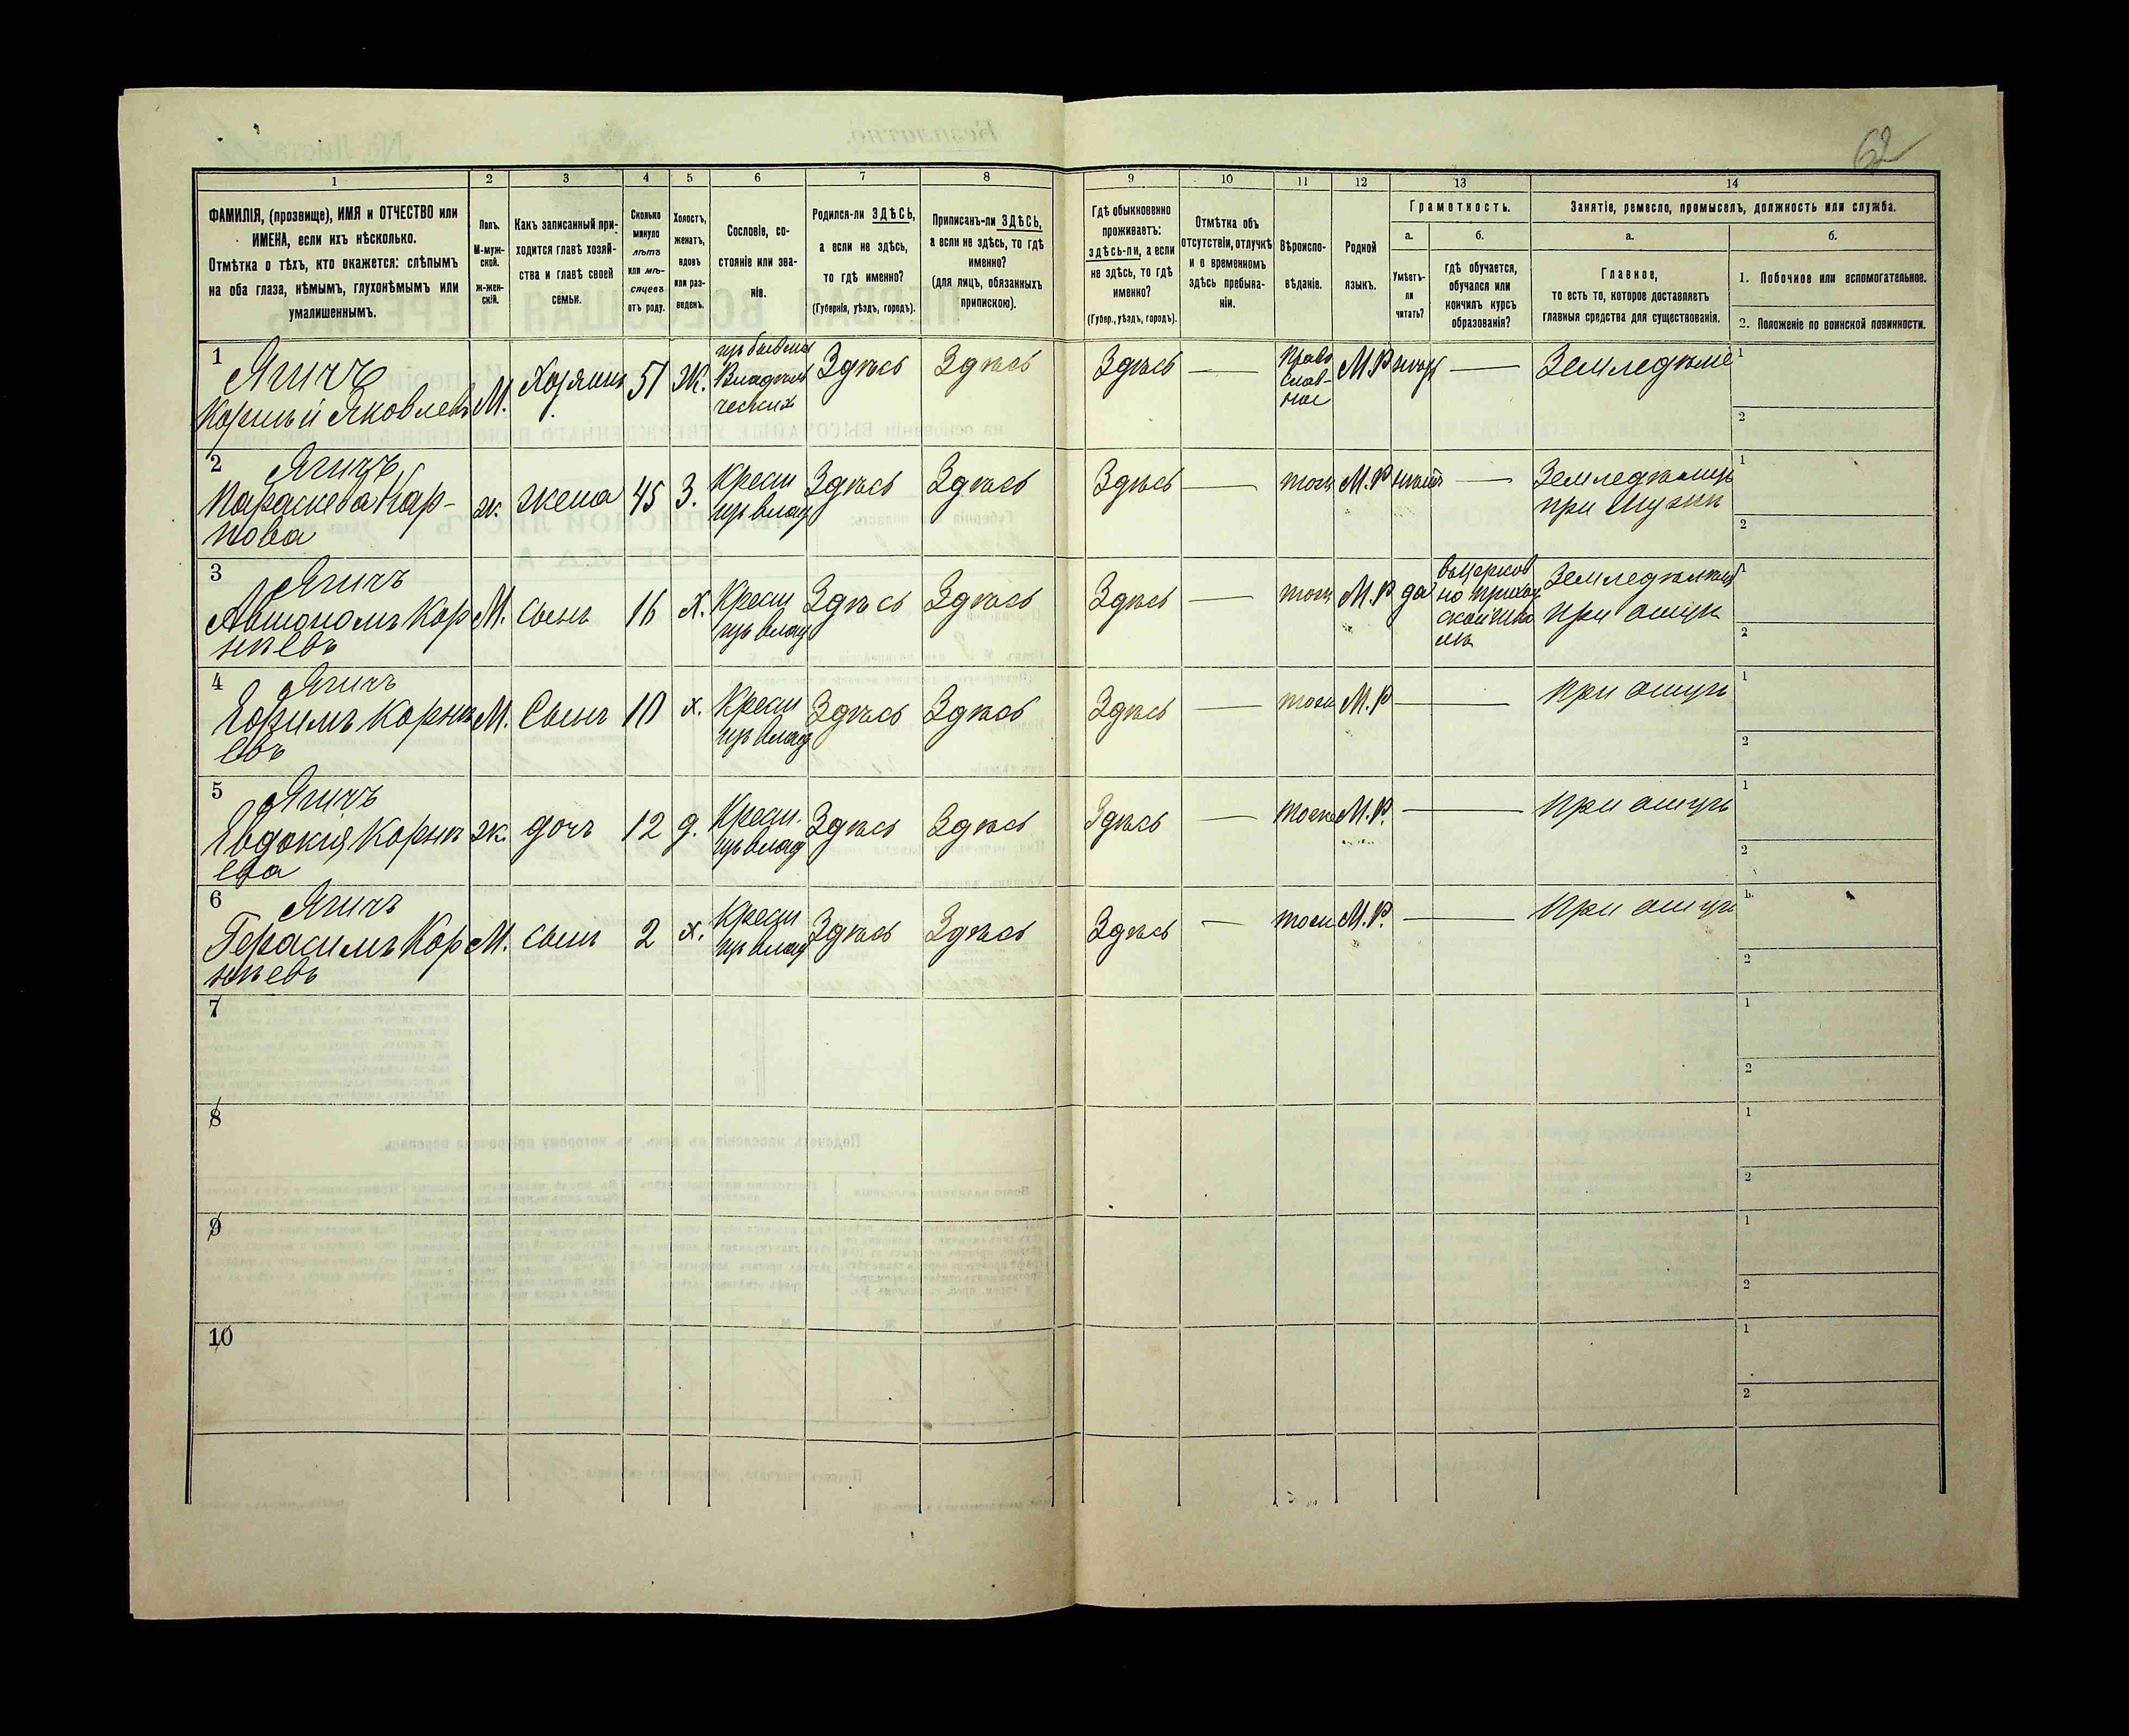 62
1 2 3 4 5 6 7 8 9 10 11 12 13 14
ФАМИЛІЯ, (прозвище), ИМЯ и ОТЧЕСТВО или
ИМЕНА, если ихъ нѣсколько.
Отмѣтка о тѣхъ, кто окажется: слѣпымъ
на оба глаза, нѣмымъ, глухонѣмымъ или
умалишеннымъ.
Полъ.
М-муж-
ской.
ж-жен-
скій.
Какъ записанный при-
ходится главѣ хозяй-
ства и главѣ своей
семьи.
Сколько
минуло
лѣтъ
или мѣ-
сяцевъ
отъ роду.
Холостъ,
женатъ,
вдовъ
или раз-
веденъ.
Сословіе, со-
стояніе или зва-
ніе.
Родился-ли ЗДѢСЬ,
а если не здѣсь,
то гдѣ именно?
(Губернія, уѣздъ, городъ).
Приписанъ-ли ЗДѢСЬ,
а если не здѣсь, то гдѣ
именно?
(для лицъ, обязанныхъ
припискою).
Гдѣ обыкновенно
проживаетъ:
здѣсь-ли, а если
не здѣсь, то гдѣ
именно?
(Губер., уѣздъ, городъ).
Отмѣтка объ
отсутствіи, отлучкѣ
и о временномъ
здѣсь пребыва-
ніи.
Вѣроиспо-
вѣданіе.
Родной
языкъ.
Грамотность.
а.
Умѣетъ-
ли
читать?
б.
гдѣ обучается,
обучался или
кончилъ курсъ
образованія?
Занятіе, ремесло, промыселъ, должность или служба.
а.
Главное,
то есть то, которое доставляетъ
главныя средства для существованія.
б.
1. Побочное или вспомогательное.
2. Положеніе по воинской повинности.
1 Ягичъ
Корнѣй Яковлевъ М. Хозяинъ 51 Ж. Владѣль
ческихъ Здѣсь Здѣсь Здѣсь — Право
слав-
ное М.Р — 1
2
2 Ягичъ
Параскева Кар-
пова ж. жена 45 З. Крест
изъ влад Здѣсь Здѣсь Здѣсь — тоже М.Р нѣтъ — Земледѣлецъ
при мужѣ 1
2
3 Ягичъ
Автономъ Кор
нѣевъ М. сынъ 16 х. Крест
изъ влад Здѣсь Здѣсь Здѣсь — тоже М.Р да въ церков
но приход
ской шко
лѣ
при отцѣ 1
2
4 Ягичъ
Ефимъ Корнѣ
евъ М. Сынъ 10 х. Крест
изъ влад Здѣсь Здѣсь Здѣсь — тоже М.Р — при отцѣ 1
2
5 Ягичъ
Евдокія Корнѣ
ева ж. дочь 12 д. Крест.
изъ влад Здѣсь Здѣсь Здѣсь — тоже М.Р. — при отцѣ 1
2
6 Ягичъ
Герасимъ Кор
нѣевъ М. сынъ 2 х. Крест
изъ влад Здѣсь Здѣсь Здѣсь — тоже М.Р. — при отцѣ 1.
2
7 1
2
8 1
2
9 1
2
10 1
2